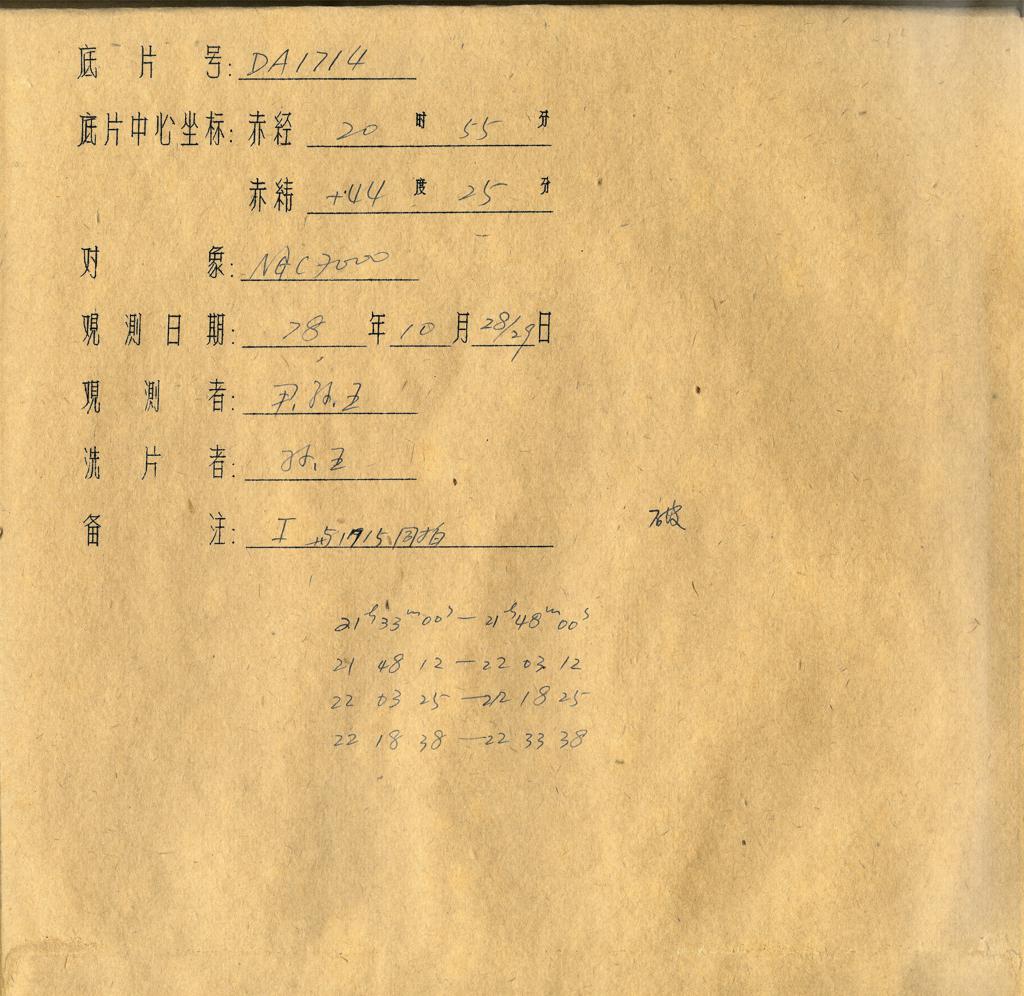 底片号: DA1714
底片中心坐标: 赤经 20 时 55 分
赤纬 +44 度 25 分
对象: NGC7000
观测日期: 78 年 10 月 28/29 日
观测者: 尹.孙.王
洗片者: 孙.王
备注: I 与1715同拍
破
21h33m00s — 21h48m00s
21 48 12 — 22 03 12
22 03 25 — 22 18 25
22 18 38 — 22 33 38